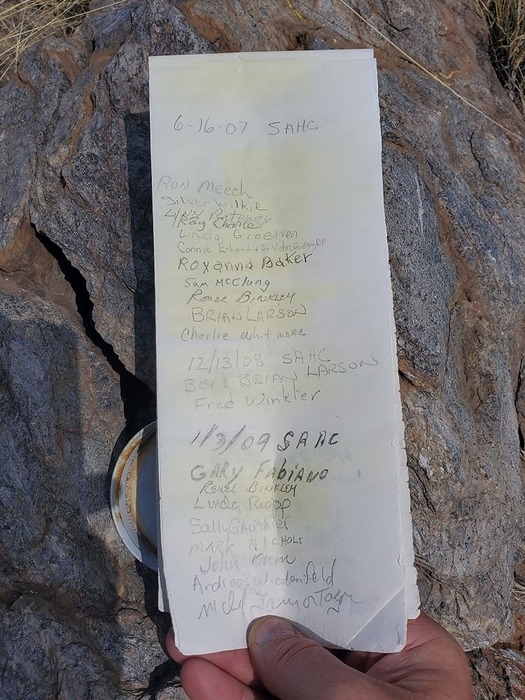 6-16-07 SAHC
Ron Meech
Silver Wilkie
Ray Chance
Linda Groessen
Connie
Roxanna Baker
Sam McClung
Renee Binkley
BRIAN LARSON
Charlie Whitmore
12/13/08 SAHC
BEV & BRIAN LARSON
Fred Winkler
1/3/09 SAHC
GARY FABIANO
Renee BINKLEY
Linda
Sally Gauthier
MARK NICHOLS
John
Andrea